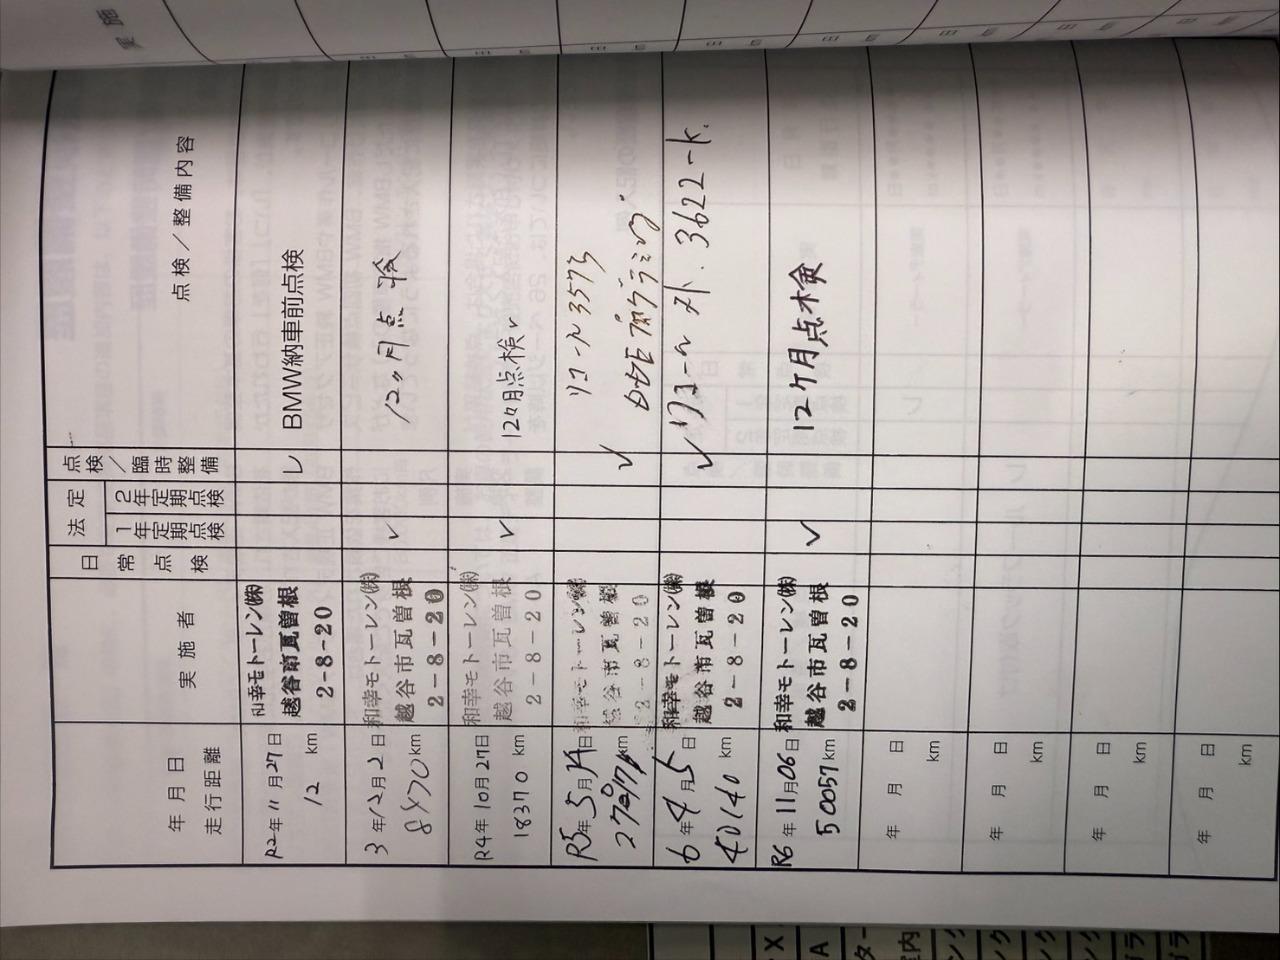 実施
年月日
走行距離
実施者
日常点検
法定
1年定期点検
2年定期点検
点検／臨時整備
点検／整備内容
R2年11月27日
12 km
和幸モトーレン㈱
越谷市瓦曽根
2-8-20
レ
BMW納車前点検
3年12月2日
km
和幸モトーレン㈱
越谷市瓦曽根
2-8-20
✓
12ヶ月点検
R4年10月27日
18370 km
和幸モトーレン㈱
越谷市瓦曽根
2-8-20
✓
12ヶ月点検✓
R5年5月日
km
和幸モトーレン㈱
越谷市瓦曽根
2-8-20
✓
リコール3573
プログラミング
6年4月5日
40140 km
和幸モトーレン㈱
越谷市瓦曽根
2-8-20
✓
リコール 外. 3622-k.
R6年11月06日
50057 km
和幸モトーレン㈱
越谷市瓦曽根
2-8-20
✓
12ケ月点検
年 月 日
km
年 月 日
km
年 月 日
km
年 月 日
km